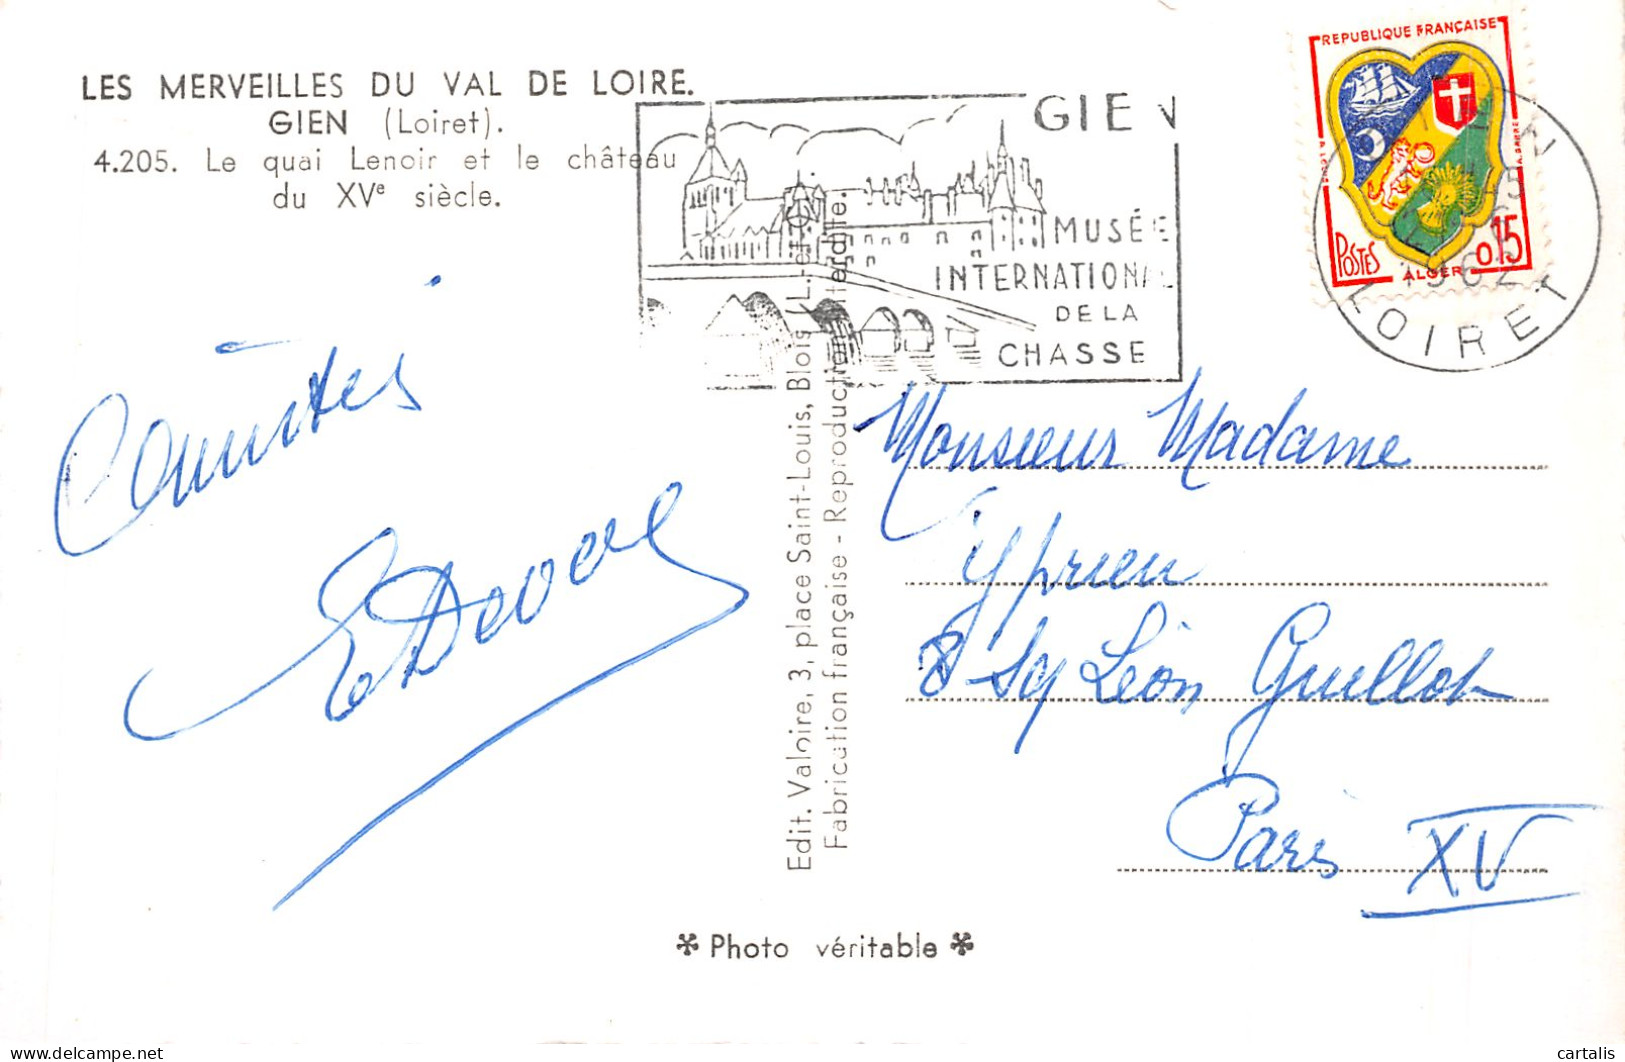 LES MERVEILLES DU VAL DE LOIRE.
GIEN (Loiret).
4.205. Le quai Lenoir et le château
du XVe siècle.
GIEN
MUSÉE
INTERNATIONAL
DE LA
CHASSE
REPUBLIQUE FRANÇAISE
POSTES
ALGER
0.15
1962
LOIRET
Amitiés
Edit. Valoire, 3, place Saint-Louis, Blois (L.-et-C.).
Fabrication française - Reproduction interdite.
Monsieur Madame
Cyprien
8 Sq Léon Guillot
Paris XV
Photo véritable
cartalis
delcampe.net